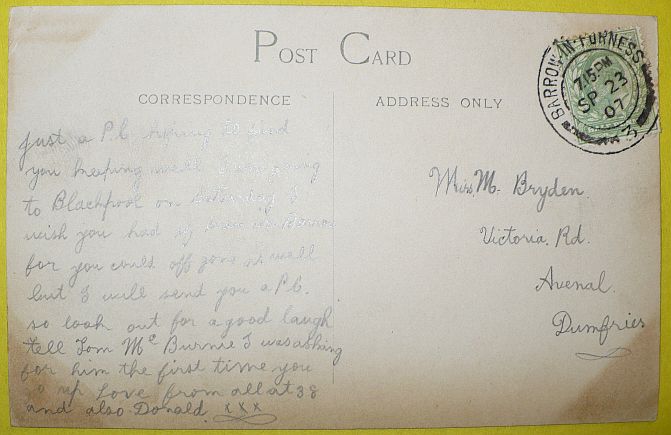 POST CARD
CORRESPONDENCE
ADDRESS ONLY
BARROW-IN-FURNESS
7.15 PM
SP 23
07
3
Just a P.C. hoping to find
you keeping well I am going
to Blackpool on Saturday I
wish you had of been in Barrow
for you could off gone as well
but I will send you a P.C.
so look out for a good laugh
tell Tom Mc Burnie I was asking
for him the first time you
up Love from all at 38
and also Donald. x x x
Miss. M. Bryden.
Victoria. Rd.
Avenal.
Dumfries